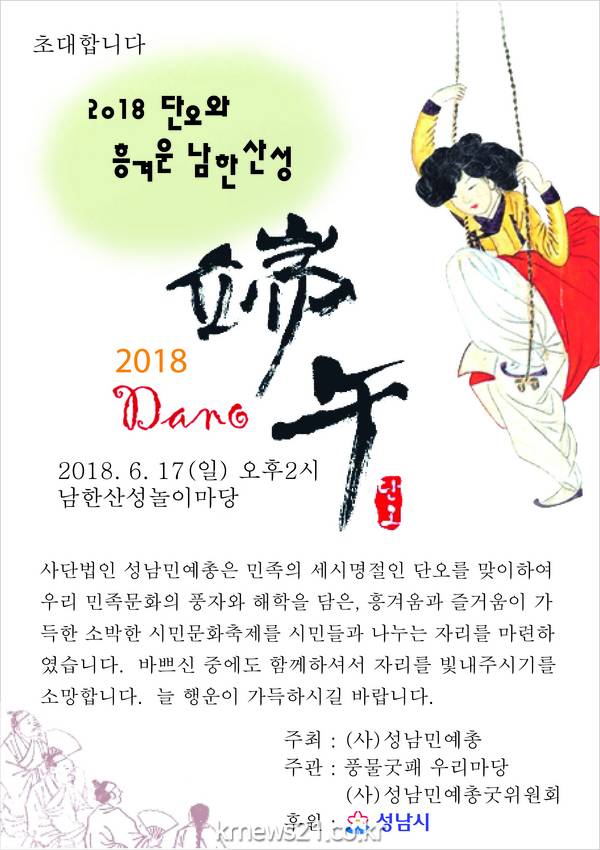 초대합니다
2018 단오와
흥겨운 남한산성
端
午
2018
Dano
단오
2018. 6. 17(일) 오후2시
남한산성놀이마당
사단법인 성남민예총은 민족의 세시명절인 단오를 맞이하여
우리 민족문화의 풍자와 해학을 담은, 흥겨움과 즐거움이 가
득한 소박한 시민문화축제를 시민들과 나누는 자리를 마련하
였습니다. 바쁘신 중에도 함께하셔서 자리를 빛내주시기를
소망합니다. 늘 행운이 가득하시길 바랍니다.
주최 : (사)성남민예총
주관 : 풍물굿패 우리마당
(사)성남민예총굿위원회
후원 : 성남시
kmews21.co.kr